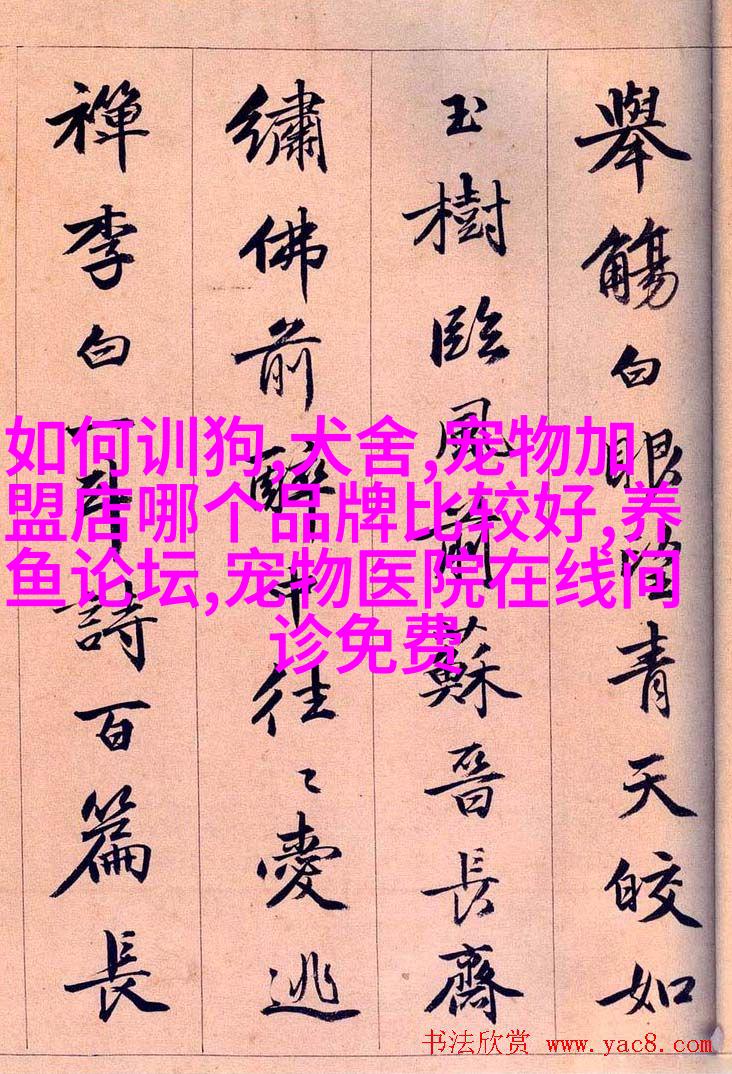 舉觴白眼望青天皎如
玉樹臨風前蘇晉長齋
繡佛前醉中往〻愛逃
禪李白一斗詩百篇長
如何训狗,犬舍,宠物加
盟店哪个品牌比较好,养
鱼论坛,宠物医院在线问
诊免费
书法欣赏 www.yac8.com